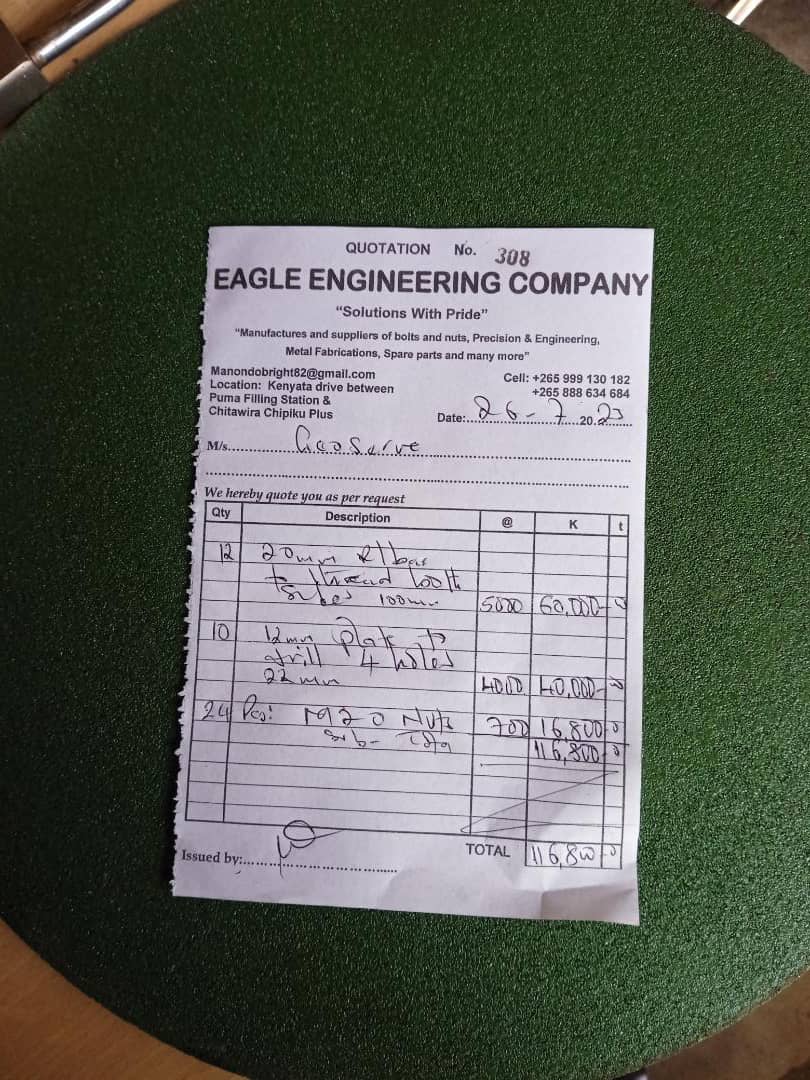 QUOTATION No. 308
EAGLE ENGINEERING COMPANY
"Solutions With Pride"
"Manufactures and suppliers of bolts and nuts, Precision & Engineering,
Metal Fabrications, Spare parts and many more"
Manondobright82@gmail.com
Location: Kenyata drive between
Puma Filling Station &
Chitawira Chipiku Plus
Cell: +265 999 130 182
+265 888 634 684
Date: 26-7 2023
M/s. GeoServe
We hereby quote you as per request
Qty Description @ K t
12 20mm
thread both
sides 100mm 5000 60,000-
10 12mm plate to
drill 4 holes
22mm 4000 40,000-
24 Pcs: M20 Nuts 700 16,800
Sub- 116,800
Issued by:
TOTAL 116,800